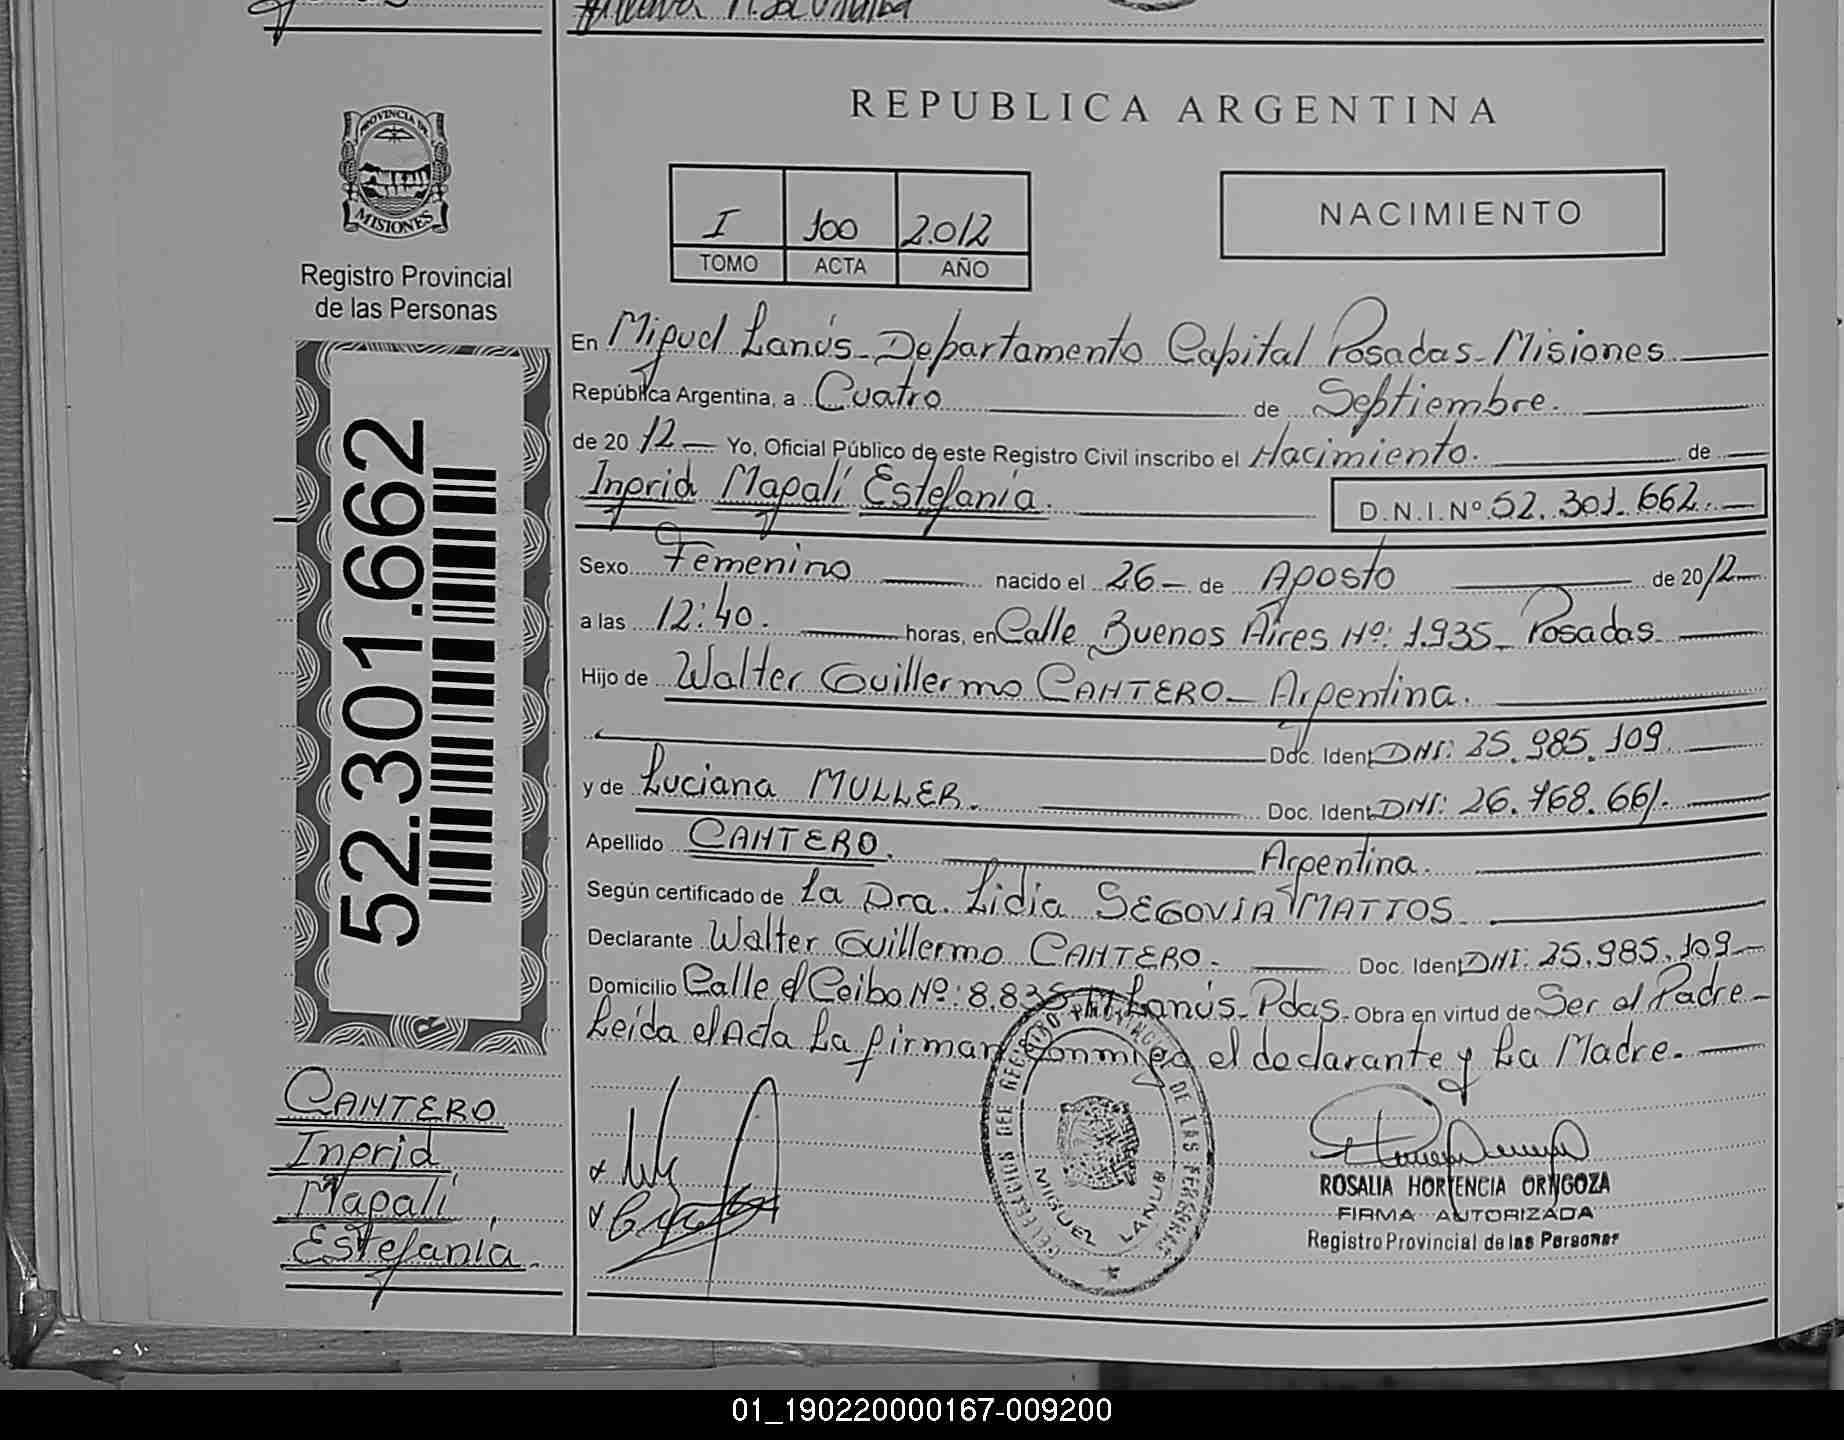 REPUBLICA ARGENTINA
PROVINCIA DE
MISIONES
Registro Provincial
de las Personas
I 100 2.012
TOMO ACTA AÑO
NACIMIENTO
52.301.662
En Miguel Lanús - Departamento Capital Posadas - Misiones
República Argentina, a Cuatro de Septiembre.
de 20 12 Yo, Oficial Público de este Registro Civil inscribo el Nacimiento. de
Ingrid Magalí Estefanía. D.N.I.Nº 52.301.662.
Sexo Femenino nacido el 26 de Agosto de 20 12
a las 12:40. horas, en Calle Buenos Aires Nº: 1.935 - Posadas
Hijo de Walter Guillermo CANTERO - Argentina.
Doc. Ident DNI: 25.985.109
y de Luciana MULLER. Doc. Ident DNI: 26.768.661.
Apellido CANTERO. Argentina.
Según certificado de La Dra. Lidia SEGOVIA MATTOS
Declarante Walter Guillermo CANTERO. Doc. Ident DNI: 25.985.109
Domicilio Calle el Ceibo Nº: 8.835 M Lanús - Pdas. Obra en virtud de Ser el Padre
Leída el Acta La firman Conmigo el declarante y La Madre.
CANTERO
Ingrid
Magalí
Estefanía.
DEL REGISTRO PROVINCIAL DE LAS PERSONAS
MIGUEL LANUS
ROSALIA HORTENCIA ORTIGOZA
FIRMA AUTORIZADA
Registro Provincial de las Personas
01_190220000167-009200